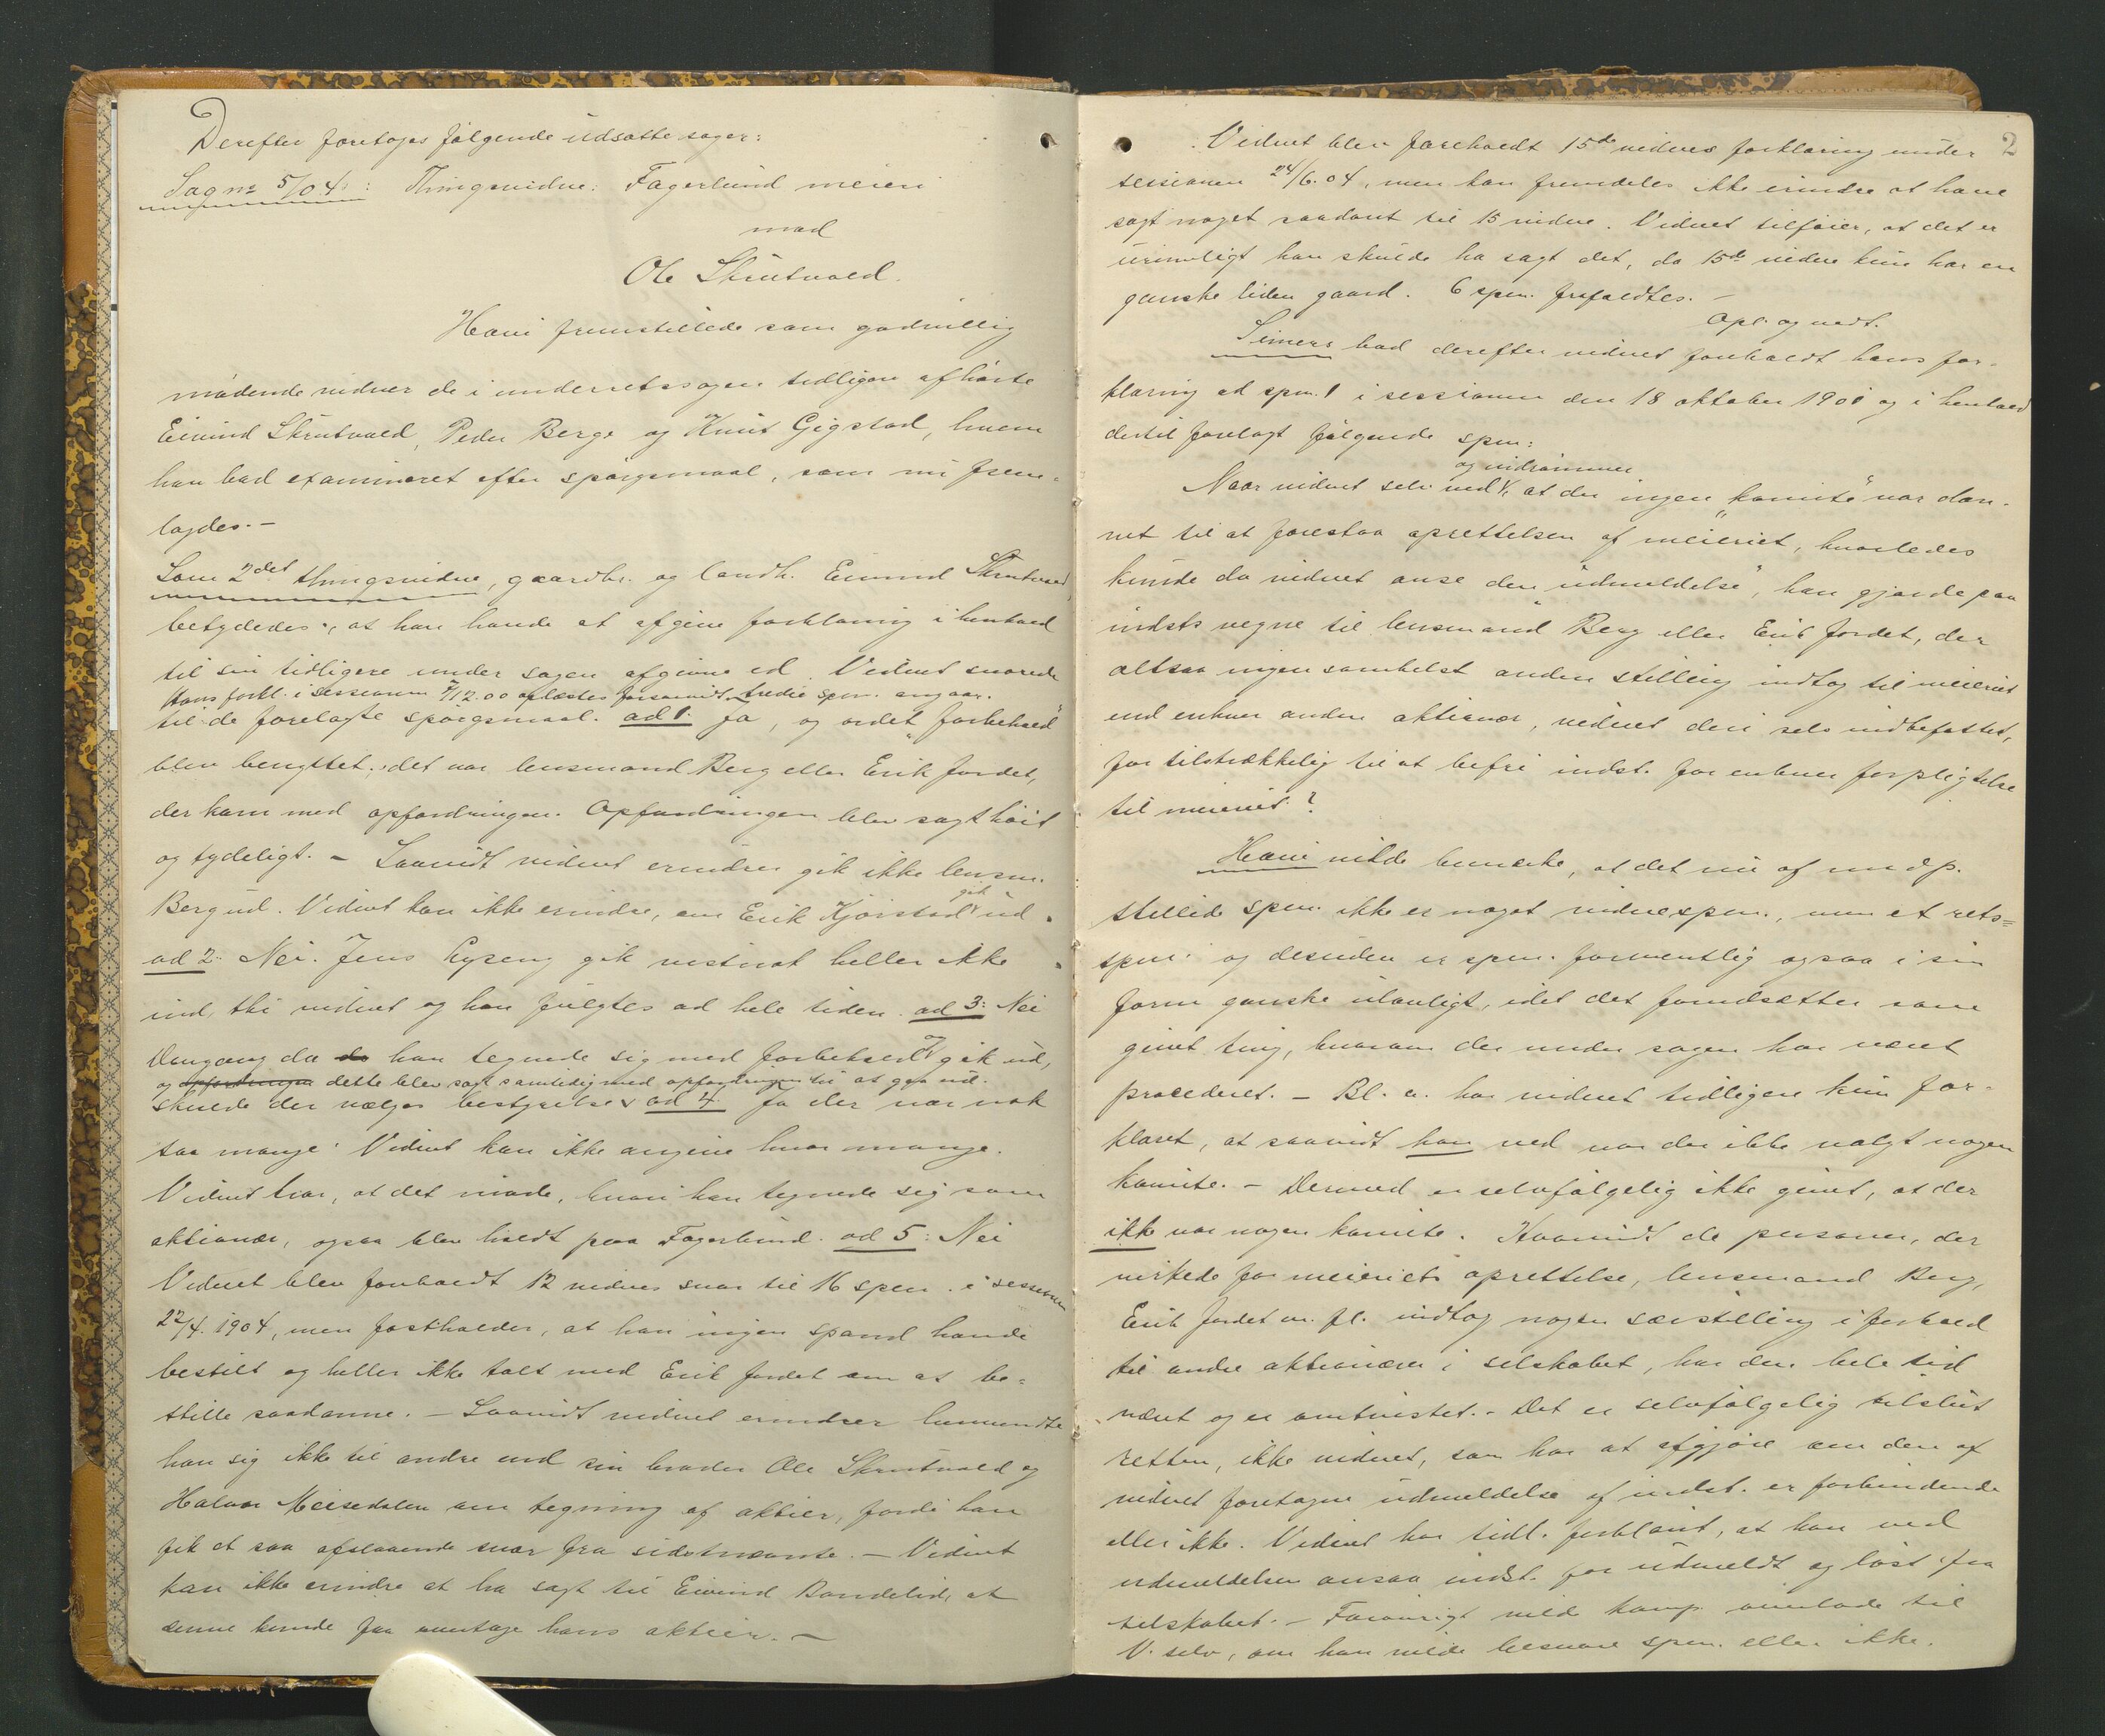 Derefter foretoges følgende udsatte sager:
Sag no 5/04: Thingsvidne: Fagerlund meieri
mod
Ole Skrutvold.
Havi fremstillede som godvillig
mødende vidner de i underretssagen tidligere afhørte
Eivind Skrutvold, Peder Berge og Knut Gigstad, hvem
han bad examineret efter spørgsmaal, som nu frem-
lagdes. -
Som 2det thingsvidne, gaardbr. og landh. Eivind Skrutvold,
betydedes, at han havde at afgive forklaring i henhold
til sin tidligere under sagen afgivne ed. Vidnet svarede
Hans forkl. i sessionen 7/12.00 oplæstes forsaavidt tredie spm. angaar.
til de forelagte spørgsmaal. ad 1. Ja, og ordet "forbehold"
blev benyttet; det var lensmand Berg eller Erik Jordet,
der kom med opfordringen. Opfordringen blev sagt høit
og tydeligt. - Saavidt vidnet erindrer gik ikke lensm.
Berg ud. Vidnet kan ikke erindre, om Erik Kjørstad gik ud.
ad 2: Nei. Jens Lyseng gik vistnok heller ikke
ind, thi vidnet og han fulgtes ad hele tiden. ad 3: Nei
Dengang da da han tegnede sig med forbehold gik ud,
og opfordringen dette blev sagt samtidig med opfordringen til at gaa ud.
skulde der vælges bestyrelse ad 4. Ja der var nok
saa mange. Vidnet kan ikke angive hvor mange.
Vidnet tror, at det møde, hvori han tegnede sig som
aktionær, ogsaa blev holdt paa Fagerlund. ad 5: Nei
Vidnet blev foreholdt 12 vidnes svar til 16 spm. i sessionen
22/4. 1904, men fastholder, at han ingen spand havde
bestilt og heller ikke talt med Erik Jordet om at be-
stille saadanne. - Saavidt vidnet erindrer henvendte
han sig ikke til andre end sin broder Ole Skrutvold og
Halvor Meisedalen om tegning af aktier, fordi han
fik et saa afslaaende svar fra sidstnævnte. - Vidnet
kan ikke erindre at ha sagt til Eivind Bandelid, at
denne kunde faa overtage hans aktier. -
2
Vidnet blev foreholdt 15de vidnes forklaring under
sessionen 24/6.04, men kan fremdeles ikke erindre at have
sagt noget saadant til 15 vidne. Vidnet tilføier, at det er
urimeligt han skulde ha sagt det, da 15de vidne kun har en
ganske liden gaard. 6 spm. frafaldtes. -
Opl. og vedt.
Simers bad derefter vidnet foreholdt hans for-
klaring ad spm. 1 i sessionen den 18 oktober 1901 og i henhold
dertil forelagt følgende spm:
og indrømmer
Naar vidnet selv ved, at der ingen "komite" var dan-
net til at forestaa oprettelsen af meieriet, hvorledes
kunde da vidnet anse den "udmeldelse", han gjorde paa
indsts vegne til lensmand Berg eller Erik Jordet, der
altsaa ingen somhelst anden stilling indtog til meieriet
end enhver anden aktionær, vidnet deri selv indbefattet,
for tilstrækkelig til at befri indst. for enhver forpligtelse
til meieriet?
Havi vilde bemærke, at det nu af modp.
stillede spm. ikke er noget vidnespm., men et rets-
spm. og desuden er spm. formentlig ogsaa i sin
form ganske ulovligt, idet det forudsætter som
givet ting, hvorom der under sagen har været
procederet. - Bl. a. har vidnet tidligere kun for-
klaret, at saavidt han ved var der ikke valgt nogen
komite. - Dermed er selvfølgelig ikke givet, at der
ikke var nogen komite. Hvorvidt de personer, der
virkede for meieriets oprettelse, lensmand Berg,
Erik Jordet m. fl. indtog nogen særstilling i forhold
til andre aktionærer i selskabet, har den hele tid
været og er omtvistet. - Det er selvfølgelig tilslut
retten, ikke vidnet, som har at afgjøre om den af
vidnet foretagne udmeldelse af indst. er forbindende
eller ikke. Vidnet har tidl. forklaret, at han ved
udmeldelsen ansaa indst. for udmeldt og løst fra
selskabet. - Forøvrigt vilde komp. overlade til
V. selv, om han vilde besvare spm. eller ikke.